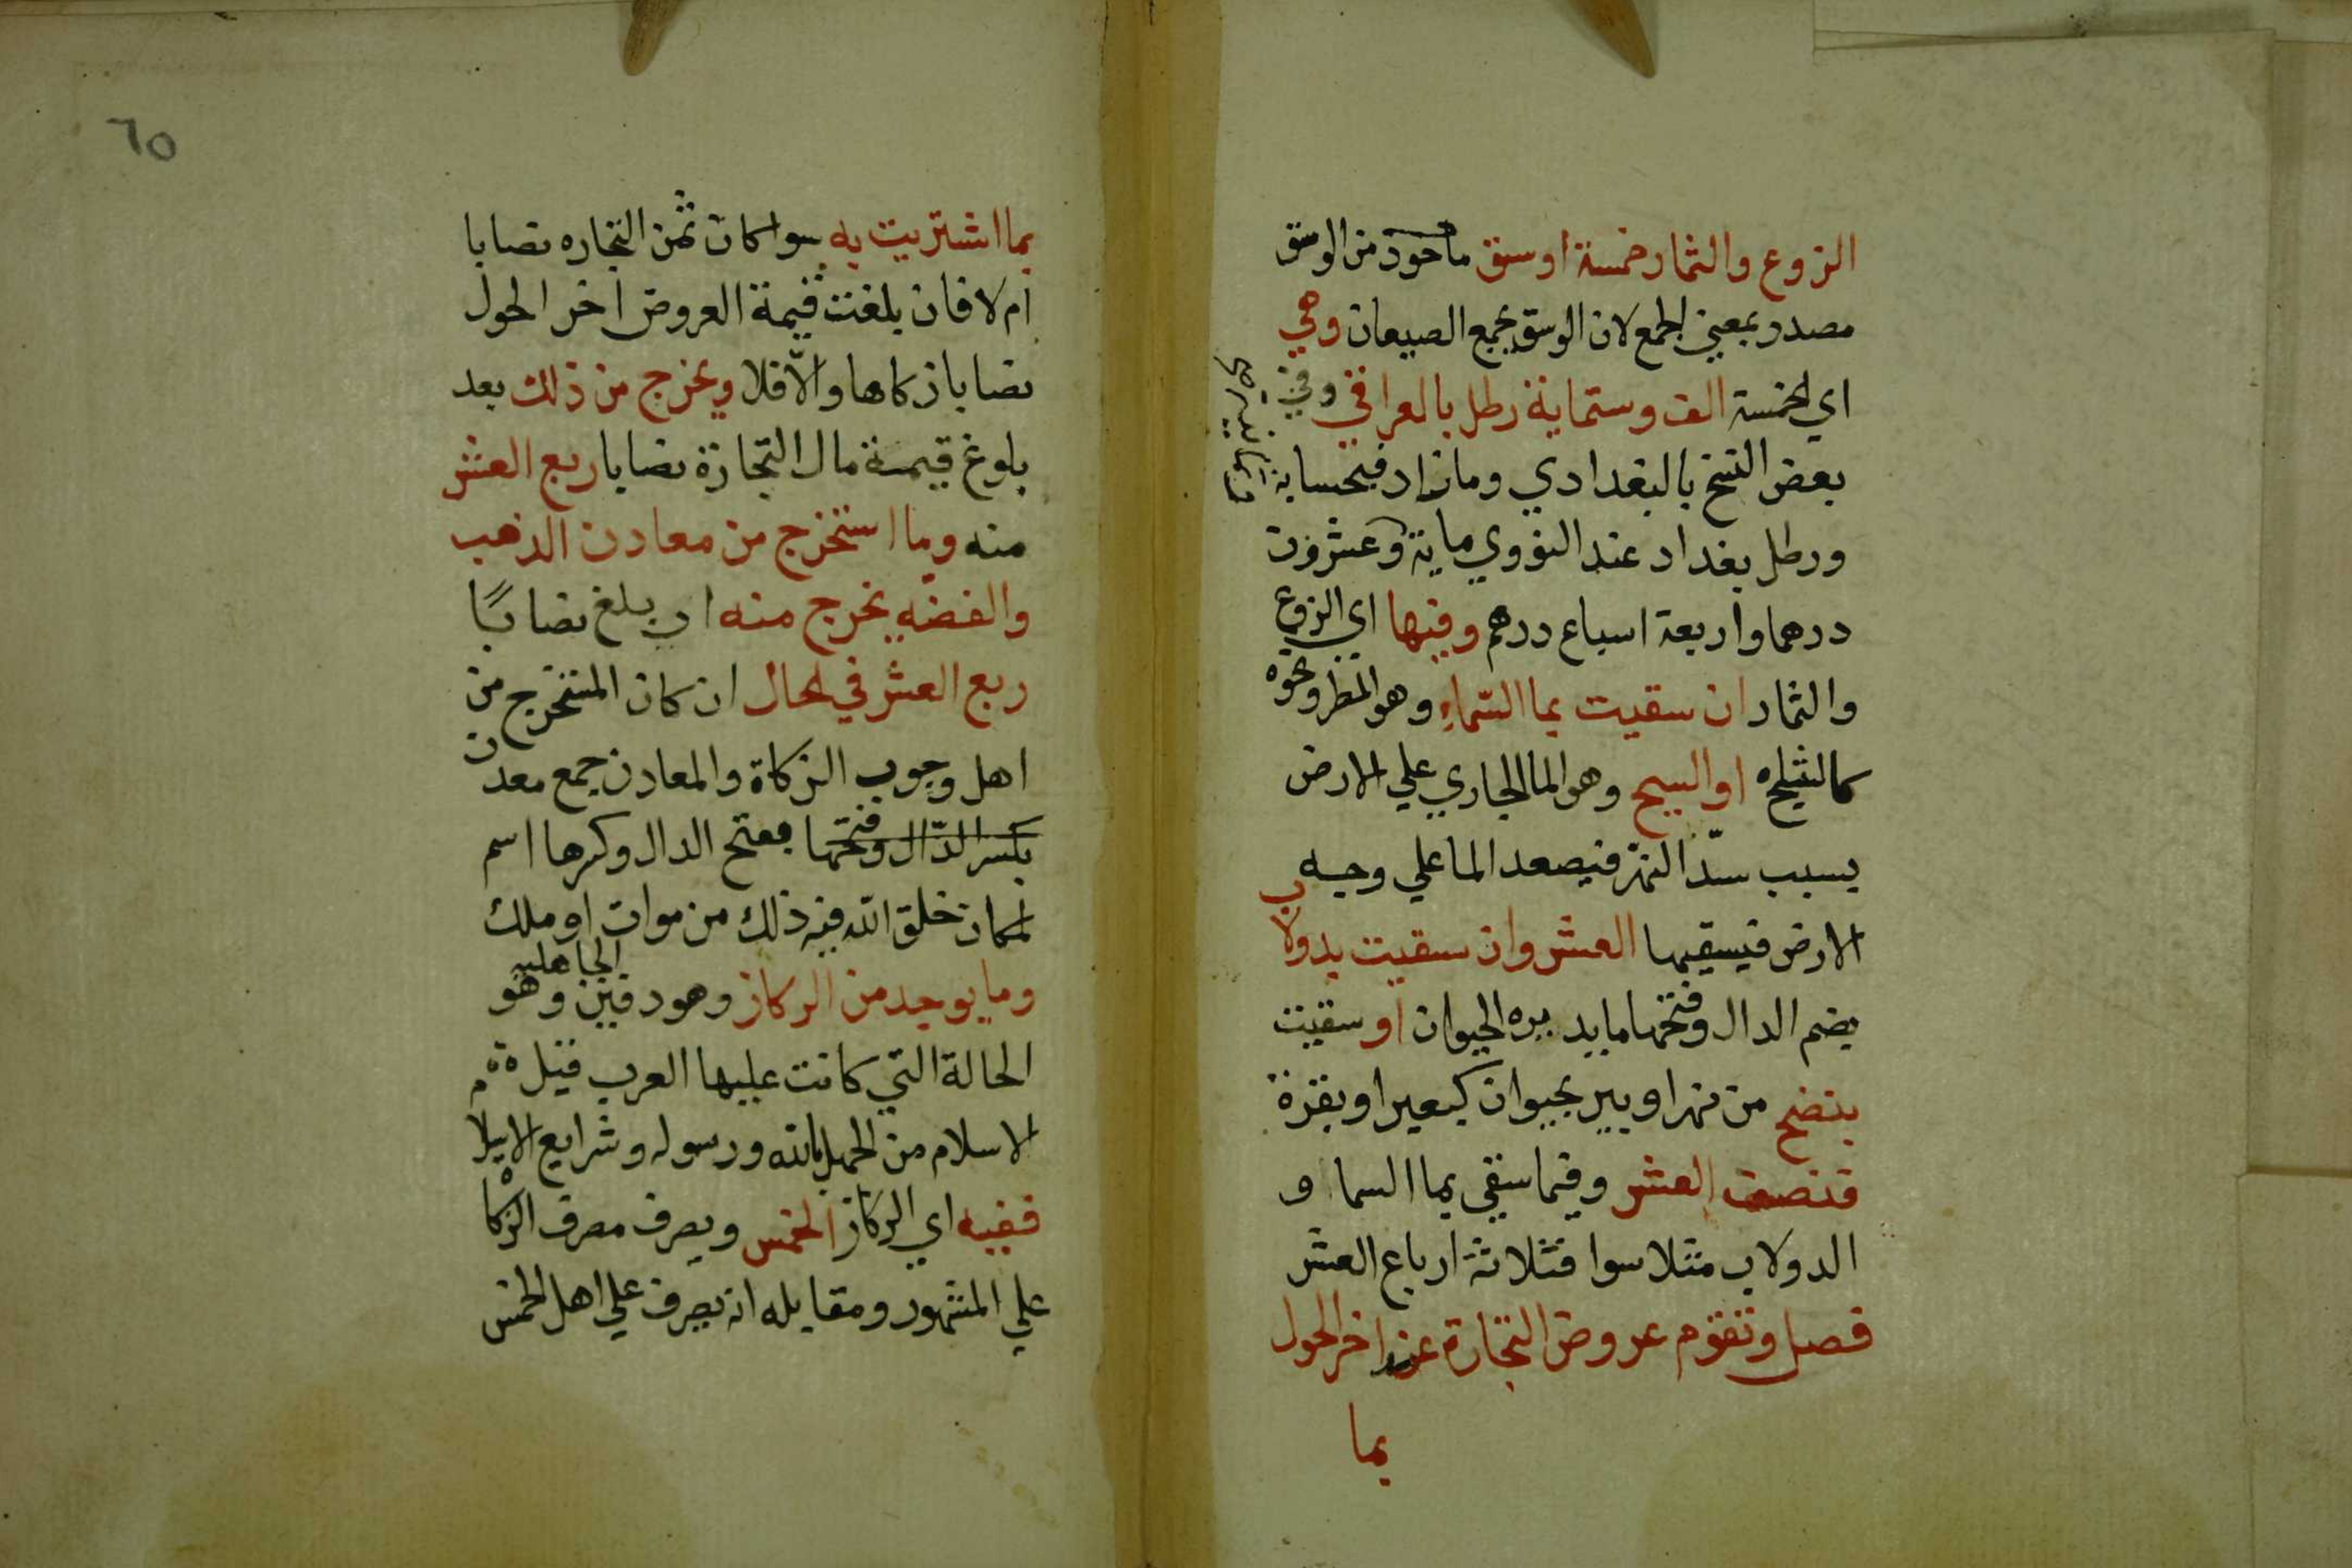 الزروع والثمار خمسة اوسق ماخوذ من الوسق
مصدر بمعني الجمع لان الوسق يجمع الصيعان وهي
اي الخمسة الف وستماية رطل بالعراقي وفي
بعض النسخ بالبغدادي ومازاد فبحسابه
ورطل بغداد عند النووي ماية وعشرون
درهما واربعة اسباع درهم وفيها اي الزروع
والثمار ان سقيت بما السّماءِ وهو المطر ونحوه
كالثلج او السيح وهو الما الجاري علي الارض
بسبب سدّ النهر فيصعد الما علي وجه
الارض فيسقيها العشر وان سقيت بدولاب
بضم الدال وفتحها ما يديره الحيوان او سقيت
بنضح من نهر او بير بحيوان كبعير او بقرة
فنصف العشر وفيما سقي بما السما و
الدولاب مثلا سوا فثلاثة ارباع العشر
فصل وتقوم عروض التجارة عند اخر الحول
بما
٦٥
بما اشتريت به سوا كان ثمن التجاره نصابا
ام لا فان بلغت قيمة العروض اخر الحول
نصابا زكاها والّا فلا ويخرج من ذلك بعد
بلوغ قيمة مال التجارة نصابا ربع العشر
منه وما استخرج من معادن الذهب
والفضه يخرج منه ان بلغ نصابًا
ربع العشر في الحال ان كان المستخرج من
اهل وجوب الزكاة والمعادن جمع معدن
بكسر الدّال وفتحها بفتح الدال وكسرها اسم
لمكان خلق الله فيه ذلك من موات او ملك
وما يوجد من الركاز وهو دفين الجاهليه وهو
الحالة التي كانت عليها العرب قبل
الاسلام من الجهل بالله ورسوله وشرايع الاسلا
ففيه اي الركاز الخمس ويصرف مصرف الزكاة
علي المشهور ومقابله انه يصرف علي اهل الخمس